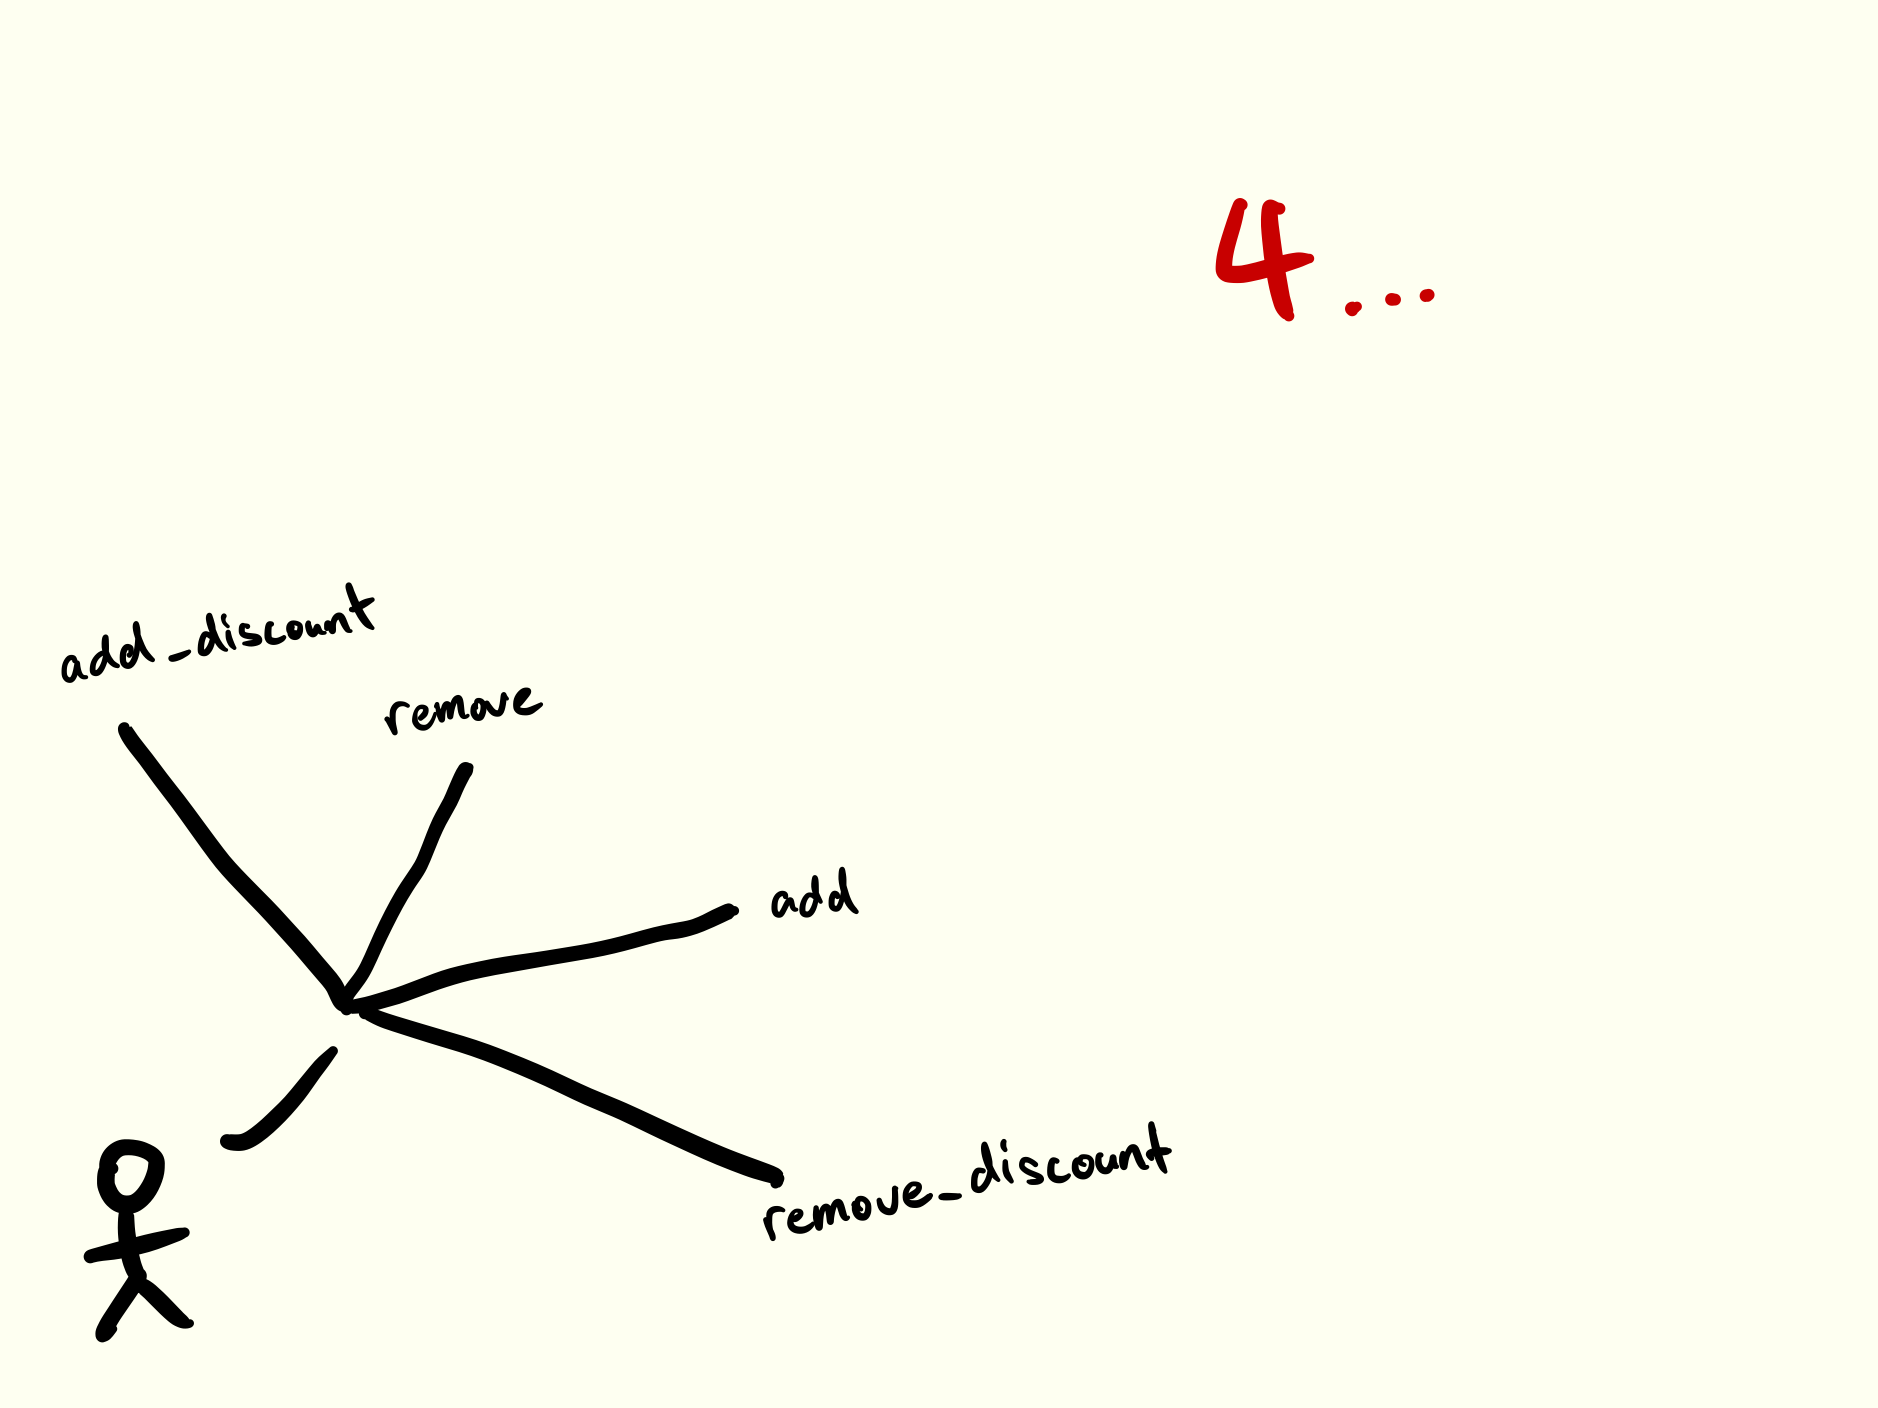 4...
add_discount
remove
add
remove_discount